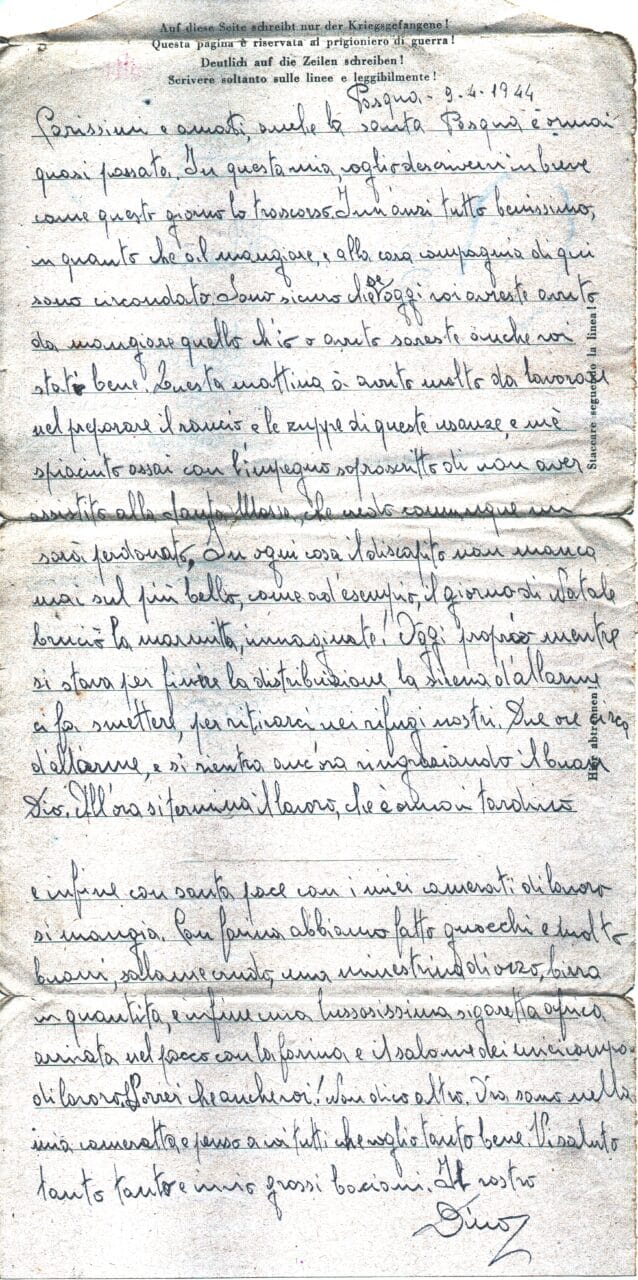 Auf diese Seite schreibt nur der Kriegsgefangene!
Questa pagina è riservata al prigioniero di guerra!
Deutlich auf die Zeilen schreiben!
Scrivere soltanto sulle linee e leggibilmente!
Pasqua - 9-4-1944
Carissimi e amati, anche la santa Pasqua è ormai
quasi passata. In questa mia, voglio descrivervi in breve
come questo giorno lo trascorso. Inn'anzi tutto benissimo,
in quanto che al mangiare, e alla cara compagnia di qui
sono circondato. Sono sicuro che se oggi voi avreste avuto
da mangiare quello ch'io o avuto sareste anche voi
stati bene. Questa mattina ò avuto molto da lavorare
nel preparare il rancio, e le zuppe di queste usanze, e m'è
spiaciuto assai con l'impegno soprascritto di non aver
assistito alla Santa Messa, che credo comunque mi
sarà perdonato, In ogni cosa il discapito non manca
mai sul più bello, come ad'esempio, il giorno di Natale
bruciò la marmitta, immaginate! Oggi proprio mentre
si stava per finire la distribuzione, la sirena d'allarme
ci fa smettere, per ritirarci nei rifugi nostri. Due ore circa
d'allarme, e si rientra anc'ora ringraziando il buon
Dio. All'ora si termina il lavoro, che è ormai tardino
e infine con santa pace con i miei camerati di lavoro
si mangia. Con farina abbiamo fatto gnocchi e molto
buoni, salame crudo, una minestrina di orzo, birra
in quantità, e infine una lussosissima sigaretta
arrivata nel pacco con la farina e il salame dei miei
di lavoro. Vorrei che anche voi! Non dico altro. Ora sono nella
mia cameretta, e penso a voi tutti che voglio tanto bene. Vi saluto
tanto tanto e invio grossi bacioni. Il vostro
Dino
Staccare seguendo la linea!
Hier abtrennen!